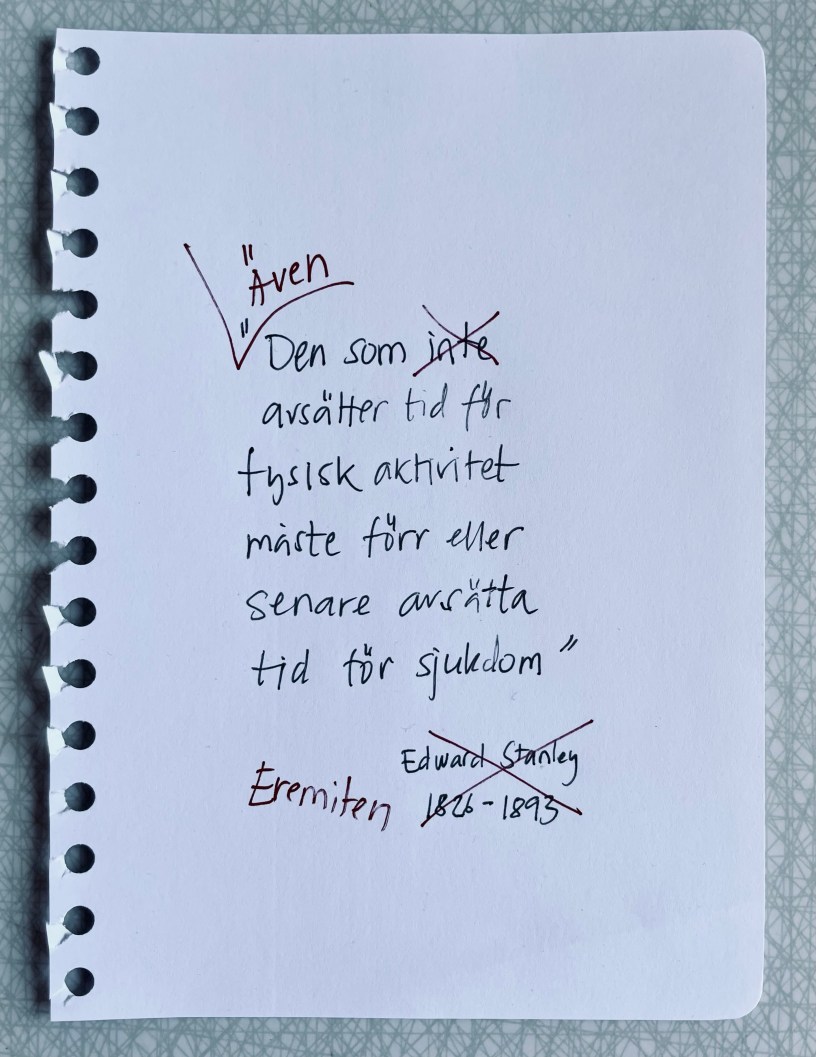 "Även
"Den som inte
avsätter tid för
fysisk aktivitet
måste förr eller
senare avsätta
tid för sjukdom"
Edward Stanley
Eremiten 1826-1893